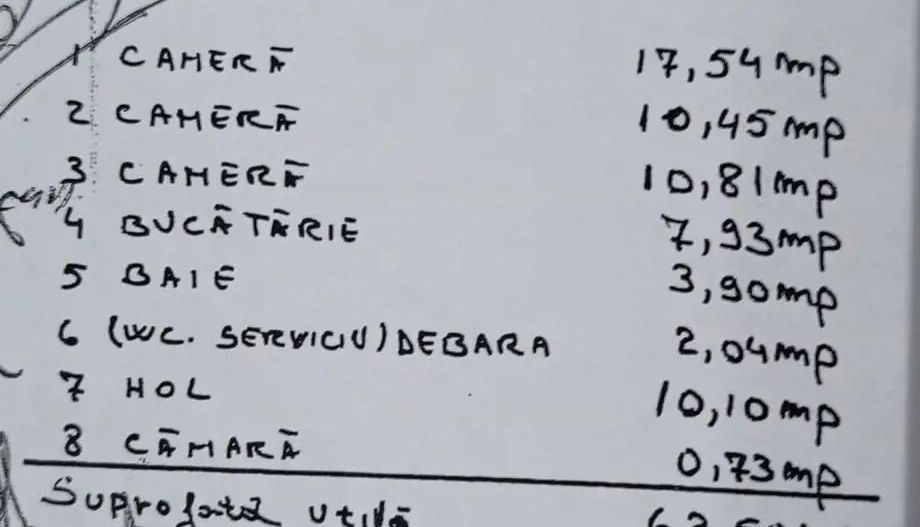 1 CAMERĂ 17,54 mp
2 CAMERĂ 10,45 mp
3 CAMERĂ 10,81 mp
4 BUCĂTĂRIE 7,93 mp
5 BAIE 3,90 mp
6 (WC. SERVICIU) DEBARA 2,04 mp
7 HOL 10,10 mp
8 CĂMARĂ 0,73 mp
Suprafață utilă